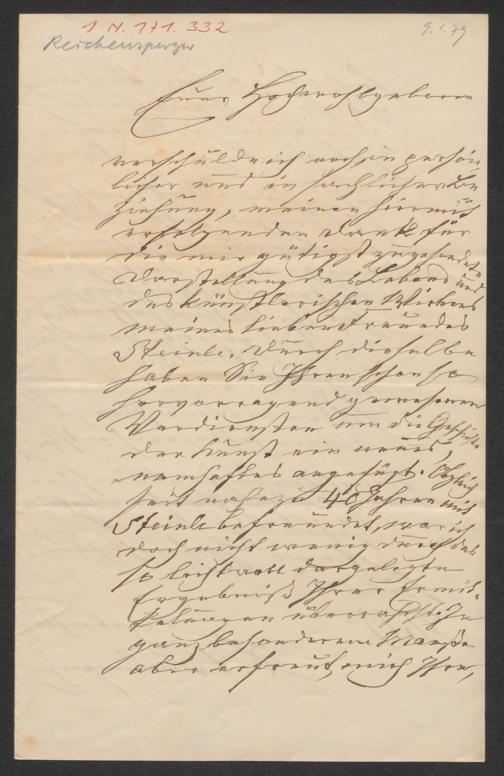 1 N. 171. 332
Reichensperger
9.1.79
Euer Hochwohlgeboren
verschulde ich noch in persön
licher und in sachlicher Be
ziehung, meinen hiermit
erfolgenden Dank für
die mir gütigst zugesendete
Darstellung des Lebens und
des künstlerischen Wirkens
meines lieben Freundes
Steinle. Durch dieselbe
haben Sie Ihren schon so
hervorragend gewesenen
Verdiensten um die Geschichte
der Kunst ein neues,
namhaftes angefügt. Obgleich
seit nahezu 40 Jahren mit
Steinle befreundet, war ich
doch nicht wenig durch das
so lichtvoll dargelegte
Ergebniß Ihrer Ermit-
telungen überrascht. In
ganz besonderem Maaße
aber erfreut mich Ihre,